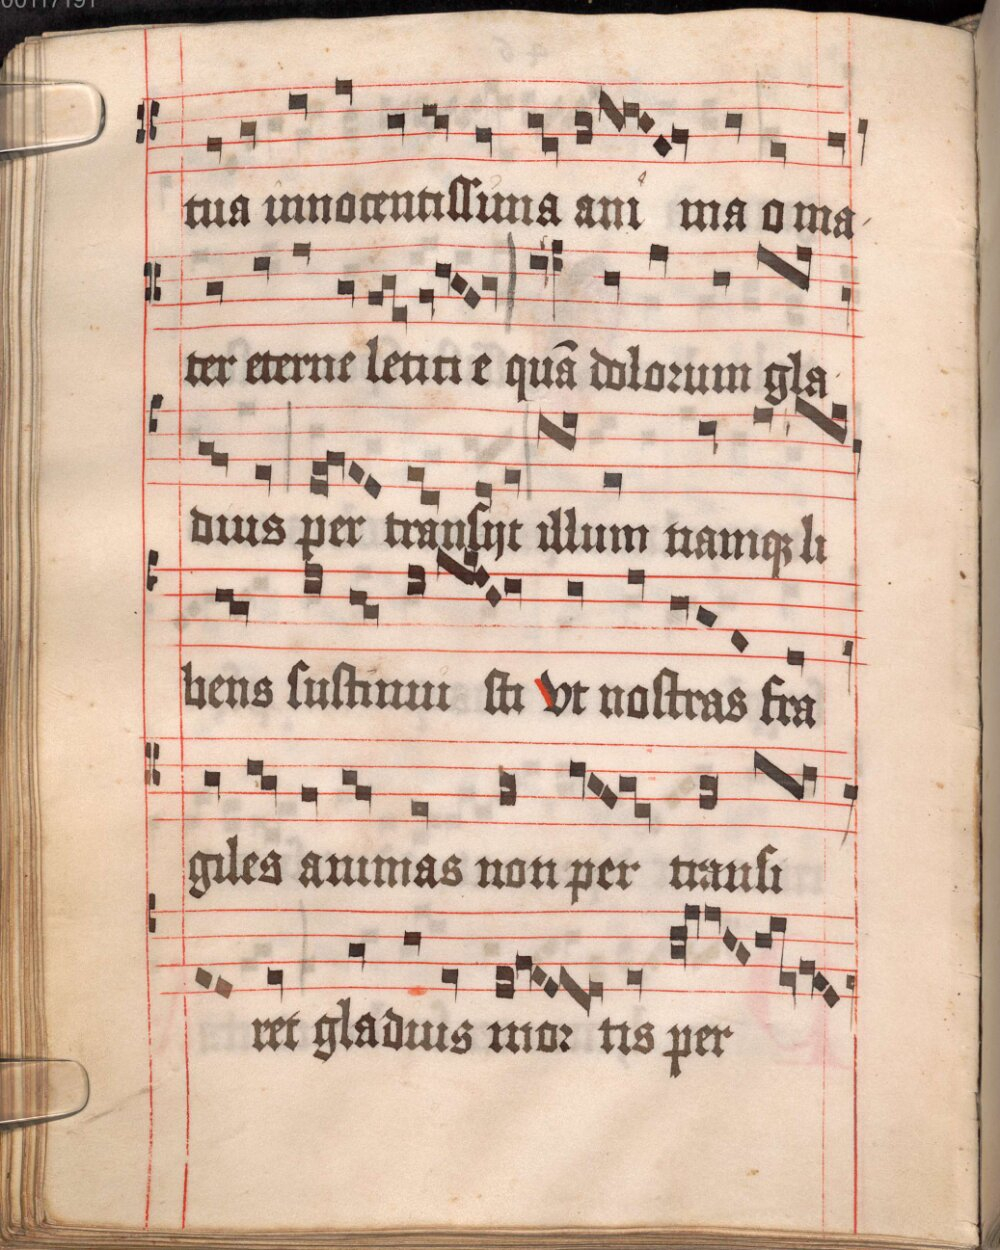 00117191
tua innocentissima ani ma o ma
ter eterne letici e quā dolorum gla
dius per transijt illum namqꝫ li
bens sustinui sti Vt nostras fra
giles animas non per transi
ret gladius mor tis per